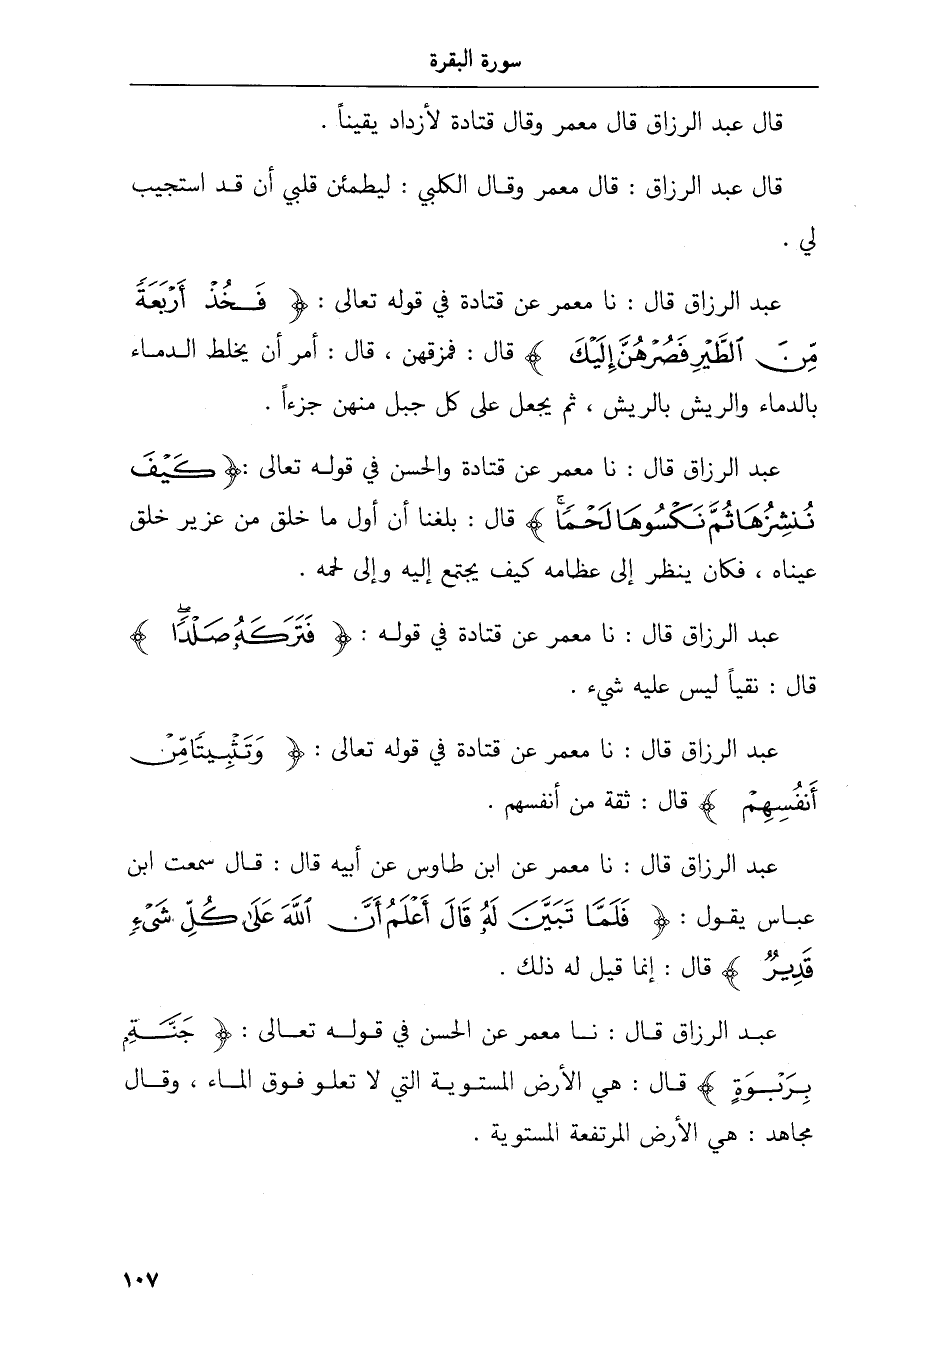 سورة البقرة
قال عبد الرزاق قال معمر وقال قتادة لأزداد يقيناً .
قال عبد الرزاق : قال معمر وقال الكلبي : ليطمئن قلبي أن قد استجيب
لي .
عبد الرزاق قال : نا معمر عن قتادة في قوله تعالى : ﴿ فَخُذْ أَرْبَعَةً
مِّنَ ٱلطَّيْرِ فَصُرْهُنَّ إِلَيْكَ ﴾ قال : فمزقهن ، قال : أمر أن يخلط الدماء
بالدماء والريش بالريش ، ثم يجعل على كل جبل منهن جزءاً .
عبد الرزاق قال : نا معمر عن قتادة والحسن في قوله تعالى :﴿ كَيْفَ
نُنشِزُهَا ثُمَّ نَكْسُوهَا لَحْمًا ۚ ﴾ قال : بلغنا أن أول ما خلق من عزير خلق
عيناه ، فكان ينظر إلى عظامه كيف يجتمع إليه وإلى لحمه .
عبد الرزاق قال : نا معمر عن قتادة في قوله : ﴿ فَتَرَكَهُۥ صَلْدًا ۖ ﴾
قال : نقياً ليس عليه شيء .
عبد الرزاق قال : نا معمر عن قتادة في قوله تعالى : ﴿ وَتَثْبِيتًا مِّنْ
أَنفُسِهِمْ ﴾ قال : ثقة من أنفسهم .
عبد الرزاق قال : نا معمر عن ابن طاوس عن أبيه قال : قال سمعت ابن
عباس يقول : ﴿ فَلَمَّا تَبَيَّنَ لَهُۥ قَالَ أَعْلَمُ أَنَّ ٱللَّهَ عَلَىٰ كُلِّ شَىْءٍ
قَدِيرٌ ﴾ قال : إنما قيل له ذلك .
عبد الرزاق قال : نا معمر عن الحسن في قوله تعالى : ﴿ جَنَّةٍۭ
بِرَبْوَةٍ ﴾ قال : هي الأرض المستوية التي لا تعلو فوق الماء ، وقال
مجاهد : هي الأرض المرتفعة المستوية .
١٠٧